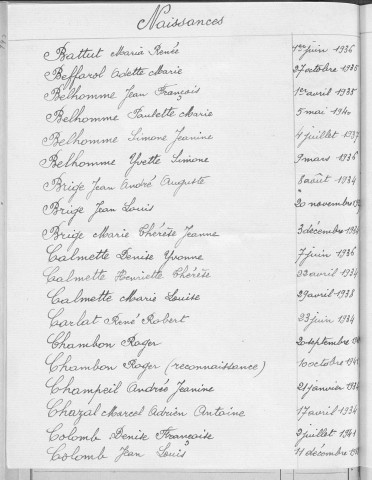 Naissances
Battut Maria Renée 1er juin 1936
Beffarol Odette Marie 27 octobre 1935
Belhomme Jean François 1er avril 1935
Belhomme Paulette Marie 5 mai 1940
Belhomme Simone Jeanine 4 juillet 1937
Belhomme Yvette Simone 9 mars 1936
Brige Jean André Auguste 8 août 1934
Brige Jean Louis 20 novembre
Brige Marie Thérèse Jeanne 3 décembre
Calmette Denise Yvonne 7 juin 1936
Calmette Henriette Thérèse 22 avril 1934
Calmette Marie Louise 29 avril 1938
Carlat René Robert 23 juin 1934
Chambon Roger 20 septembre
Chambon Roger (reconnaissance) 10 octobre
Champeil Andrée Jeanine 21 janvier
Chazal Marcel Adrien Antoine 17 avril 1934
Colomb Denise Françoise 2 juillet 1941
Colomb Jean Louis 11 décembre